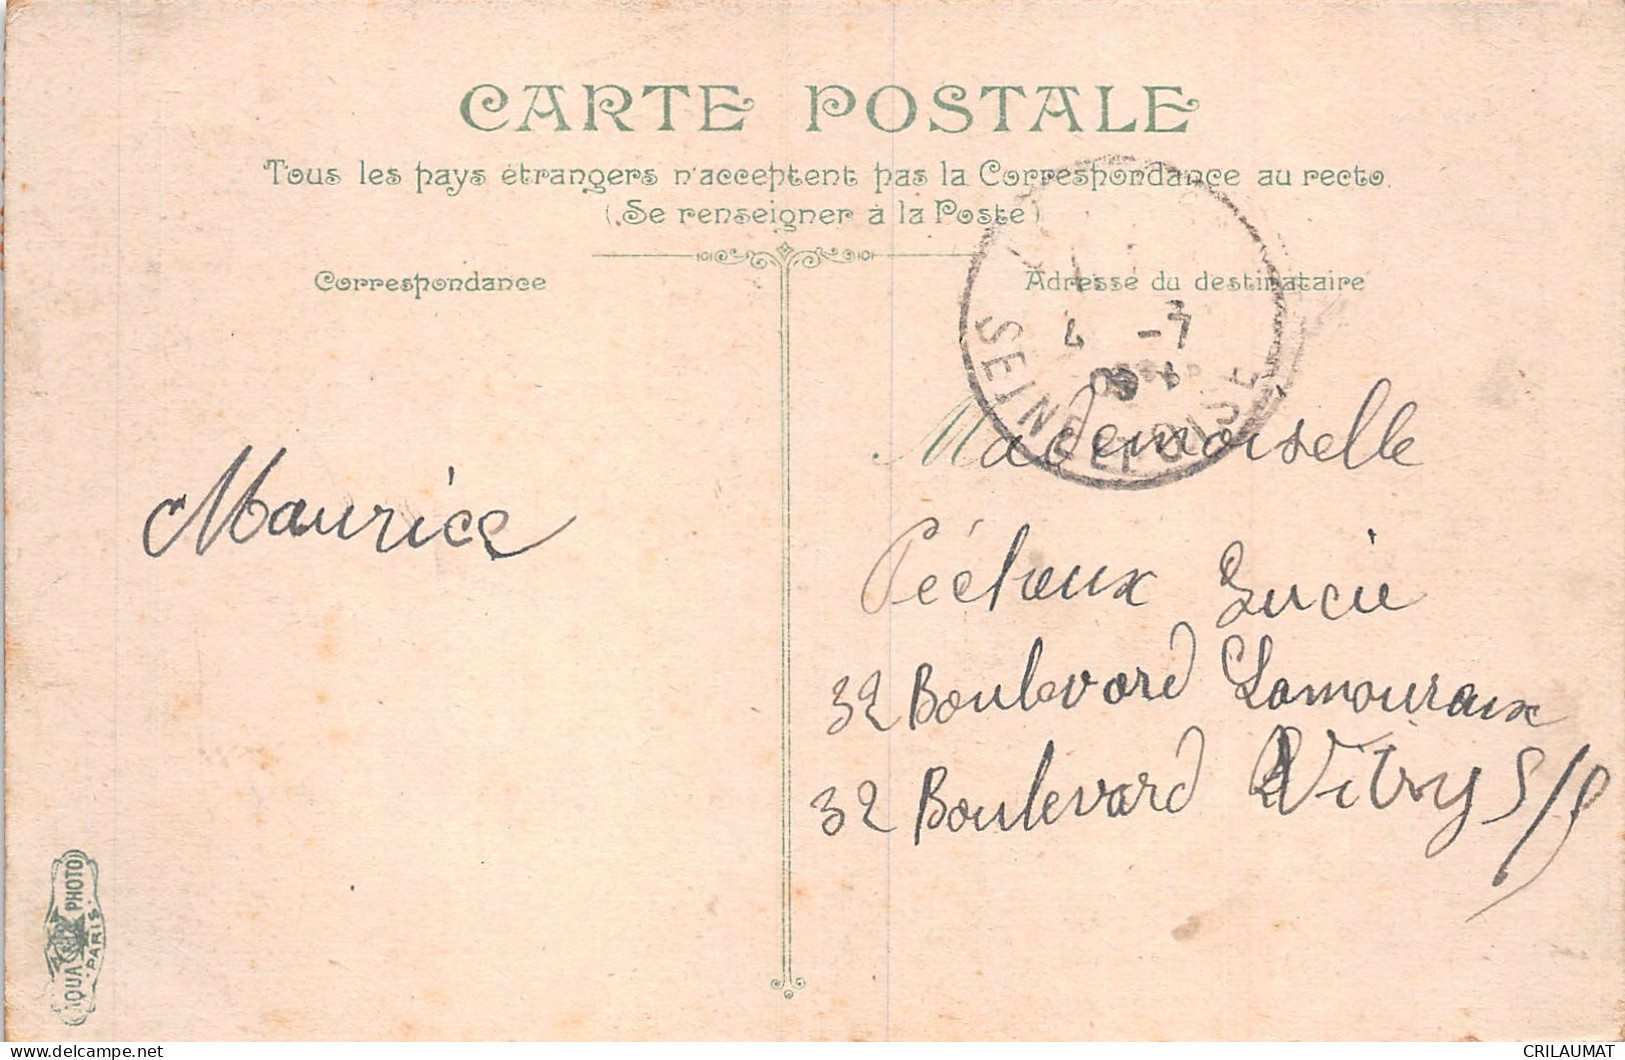 CARTE POSTALE
Tous les pays étrangers n'acceptent pas la Correspondance au recto
(Se renseigner à la Poste)
Correspondance
Adresse du destinataire
4 -7
SEINE ET OISE
Mademoiselle
Maurice
Pécheux Lucie
32 Boulevard Lamouraux
32 Boulevard Vitry S/S
AQUA PHOTO
PARIS
CRILAUMAT